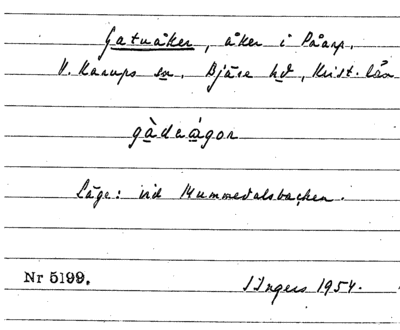 Gatuåker, åker i Påarp.
V. Karups sn. Bjäre hd, Krist. län
gàdeágor
Läge: vid Hummedalsbacken.
Nr 5199. I Ingers 1954.